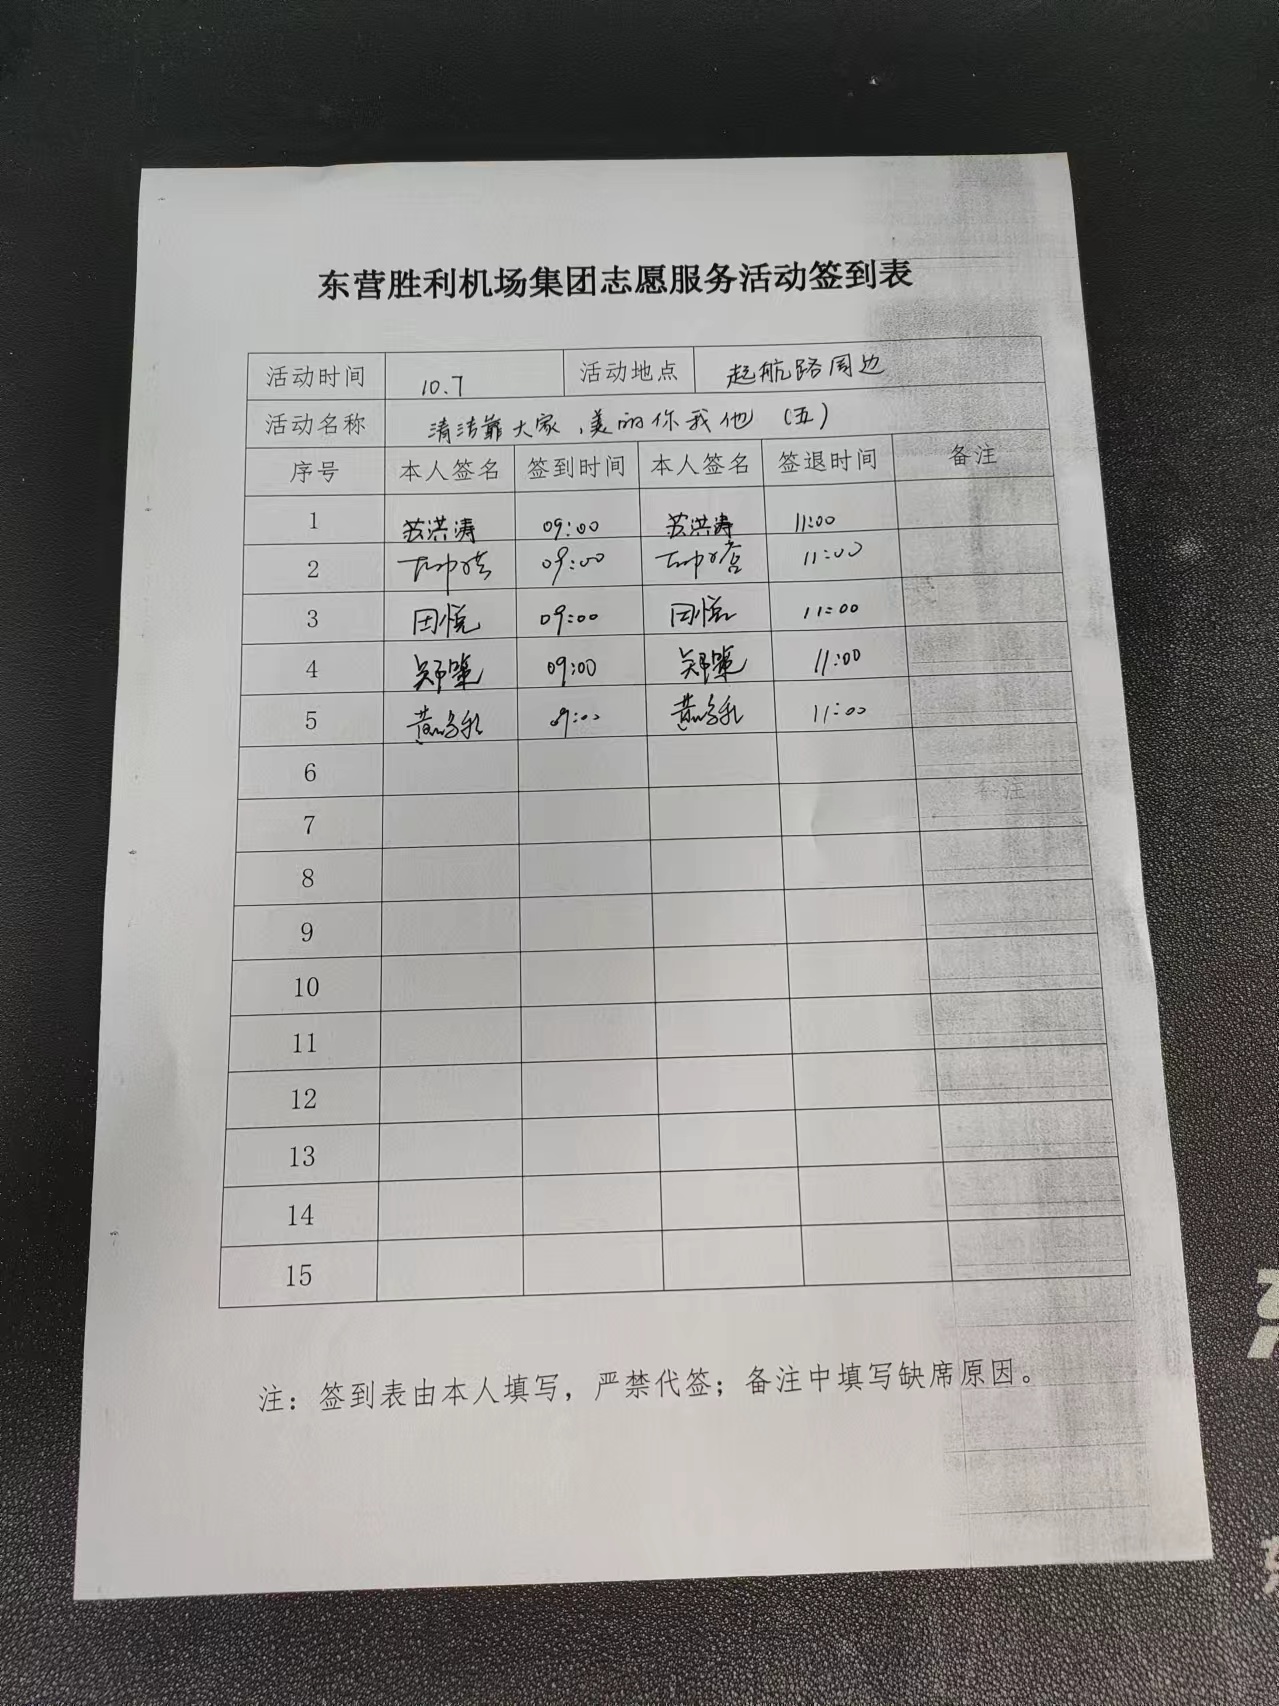 东营胜利机场集团志愿服务活动签到表
活动时间 10.7 活动地点 起航路周边
活动名称 清洁靠大家,美的你我他 (五)
序号 本人签名 签到时间 本人签名 签退时间 备注
1 苏洪涛 09:00 苏洪涛 11:00
2 09:00 11:00
3 田悦 09:00 田悦 11:00
4 郑策 09:00 郑策 11:00
5 09:00 11:00
6
7
8
9
10
11
12
13
14
15
注：签到表由本人填写，严禁代签；备注中填写缺席原因。